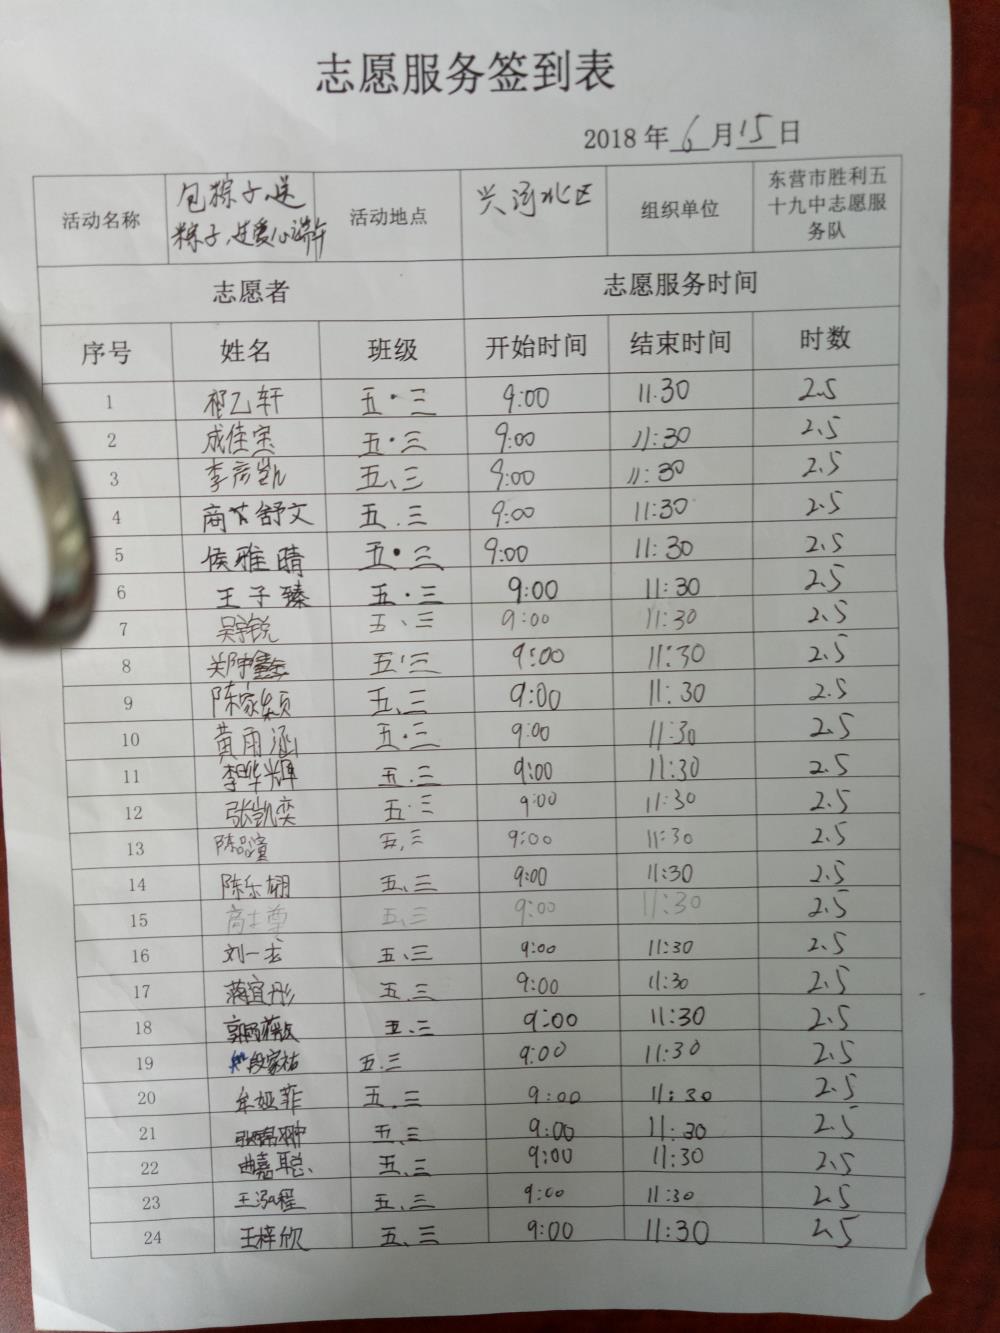 志愿服务签到表
2018年6月15日
活动名称 包粽子、送粽子、送爱心端午 活动地点 兴河北区 组织单位 东营市胜利五十九中志愿服务队
志愿者 志愿服务时间
序号 姓名 班级 开始时间 结束时间 时数
1 乙轩 五·三 9:00 11.30 2.5
2 成佳宝 五·三 9:00 11:30 2.5
3 李彦凯 五、三 9:00 11:30 2.5
4 商 舒文 五.三 9:00 11:30 2.5
5 侯雅晴 五·三 9:00 11:30 2.5
6 王子臻 五·三 9:00 11:30 2.5
7 吴宇锐 五、三 9:00 11:30 2.5
8 郑 五·三 9:00 11:30 2.5
9 陈家颖 五、三 9:00 11:30 2.5
10 黄雨涵 五·三 9:00 11:30 2.5
11 李晔辉 五.三 9:00 11:30 2.5
12 张凯奕 五·三 9:00 11:30 2.5
13 陈品潼 五,三 9:00 11:30 2.5
14 陈乐栩 五、三 9:00 11:30 2.5
15 高 五、三 9:00 11:30 2.5
16 刘一 五、三 9:00 11:30 2.5
17 蒋宜彤 五.三 9:00 11:30 2.5
18 郭 五.三 9:00 11:30 2.5
19 段家祐 五.三 9:00 11:30 2.5
20 牟娅菲 五.三 9:00 11:30 2.5
21 张 翀 五、三 9:00 11:30 2.5
22 曲嘉聪 五、三 9:00 11:30 2.5
23 王泓程 五、三 9:00 11:30 2.5
24 王梓欣 五、三 9:00 11:30 2.5